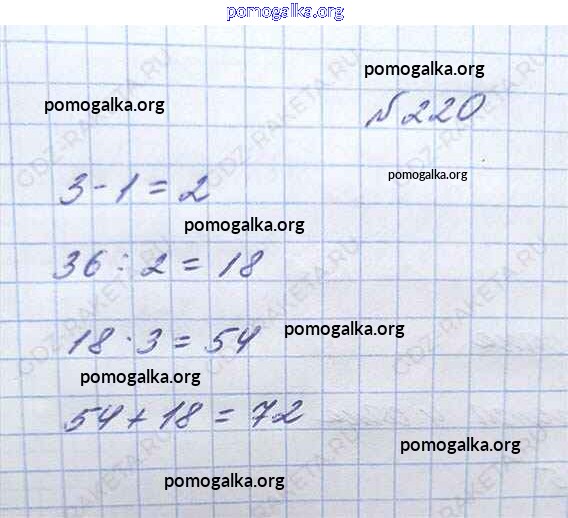 pomogalka.org
pomogalka.org
pomogalka.org
№ 220
pomogalka.org
3 - 1 = 2
pomogalka.org
36 : 2 = 18
18 · 3 = 54
pomogalka.org
pomogalka.org
54 + 18 = 72
pomogalka.org
pomogalka.org
GDZ-RAKETA.RU